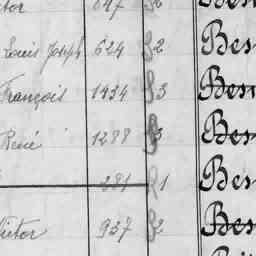 ctor 647 2 Bes
Louis Joseph 624 2 Bes
François 1434 3 Bes
René 1288 3 Bes
281 1 Bes
Victor 937 2 Bes